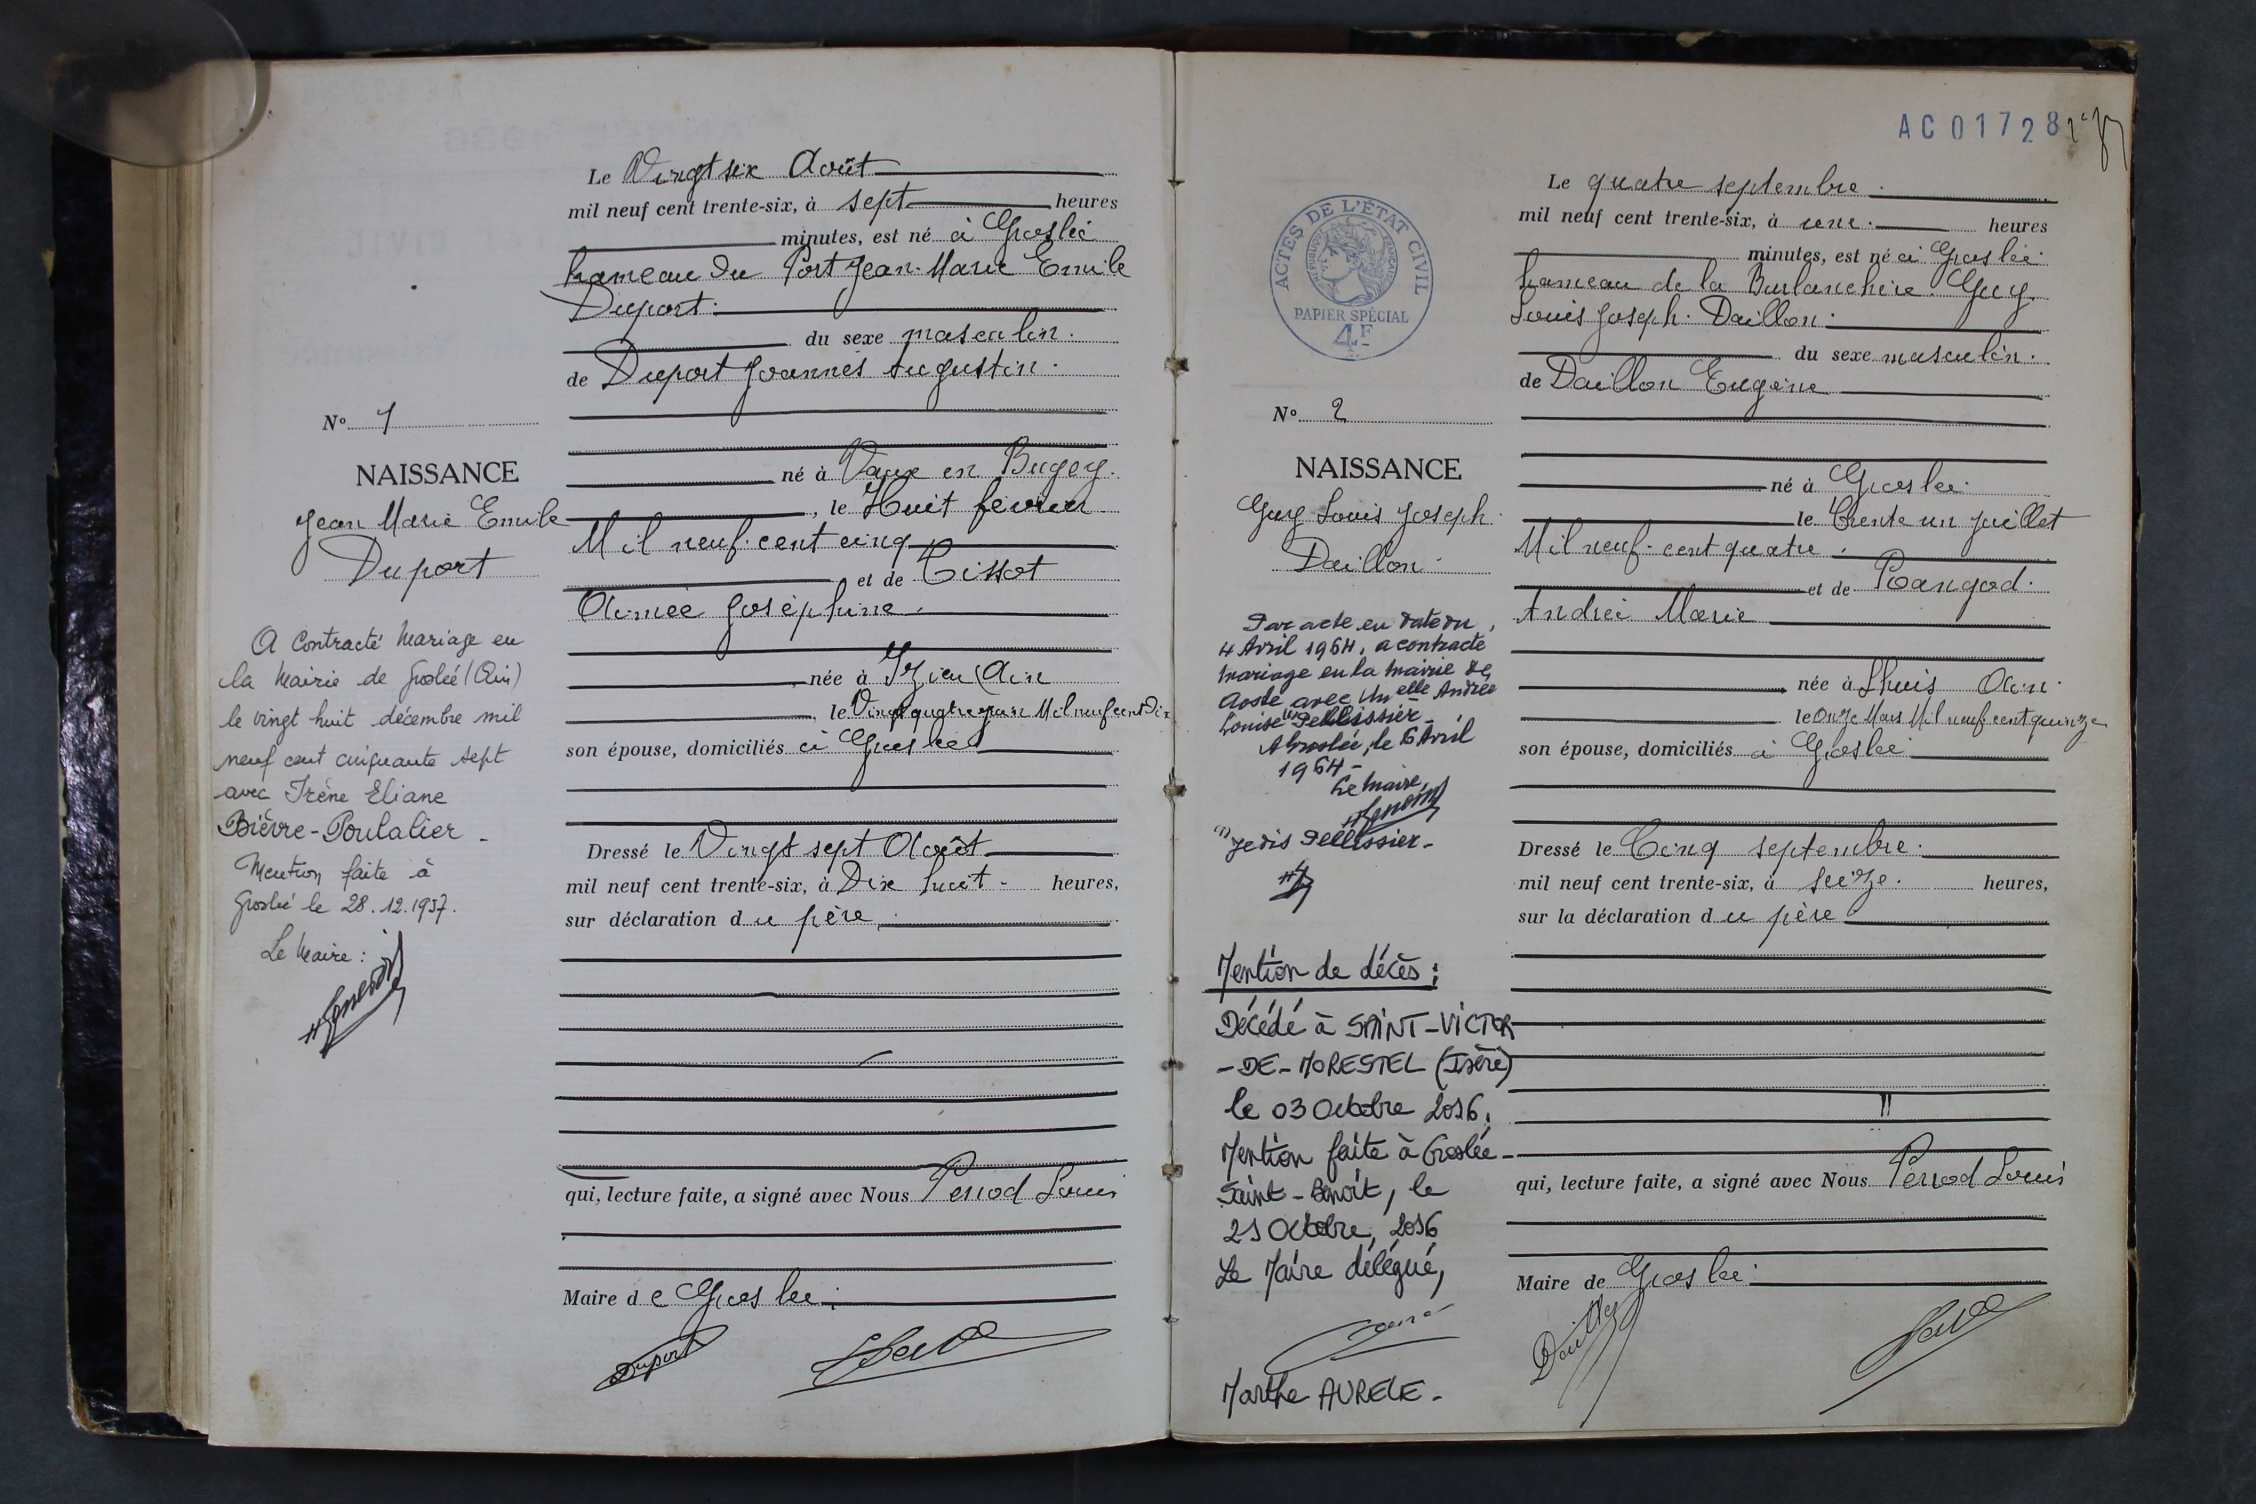 Le Vingt six Août
mil neuf cent trente-six, à sept heures
minutes, est né à Groslée
hameau du Port Jean-Marie Emile
Duport.
du sexe masculin.
de Duport Joannès Augustin.
né à Vaux en Bugey.
, le Huit février
Mil neuf cent cinq
et de Tissot
Aimée Joséphine.
née à Izieu (Ain
, le Vingt quatre Mil neuf cent dix
son épouse, domiciliés à Groslée
Dressé le Vingt sept Août
mil neuf cent trente-six, à Dix huit - heures,
sur déclaration du père
qui, lecture faite, a signé avec Nous Perrod Louis
Maire de Groslée.
Duport
N° 1
NAISSANCE
Jean Marie Emile
Duport
A Contracté Mariage en
la Mairie de Groslée (Ain)
le vingt huit décembre mil
neuf cent cinquante sept
avec Irène Eliane
Bièvre-Poulalier -
Mention faite à
Groslée le 28.12.1957.
Le Maire :
AC 01728
ACTES DE L'ÉTAT CIVIL
RÉPUBLIQUE FRANÇAISE
PAPIER SPÉCIAL
4F
N° 2
NAISSANCE
Guy Louis Joseph.
Daillon.
Par acte en date du
4 Avril 1964, a contracté
mariage en la mairie de
Aoste avec Melle Andrée
Louise (1) Pellissier -
A Groslée, le 6 Avril
1964 -
Le Maire,
(1) Je dis Pellissier -
Mention de décès :
Décédé à SAINT-VICTOR
-DE-MORESTEL (Isère)
le 03 Octobre 2016.
Mention faite à Groslée-
Saint-Benoît, le
21 Octobre, 2016
Le Maire délégué,
Marthe AURELE -
Le quatre septembre.
mil neuf cent trente-six, à une. heures
minutes, est né à Groslée
hameau de la Burlanchère. Guy.
Louis Joseph. Daillon.
du sexe masculin.
de Daillon Eugène
né à Groslée.
le trente un juillet
Mil neuf-cent quatre.
et de Rangod.
Andrée Marie
née à Lhuis Ain.
le Onze Mars Mil neuf cent quinze
son épouse, domiciliés à Groslée
Dressé le Cinq septembre.
mil neuf cent trente-six, à seize. heures,
sur la déclaration du père
qui, lecture faite, a signé avec Nous Perrod Louis
Maire de Groslée.